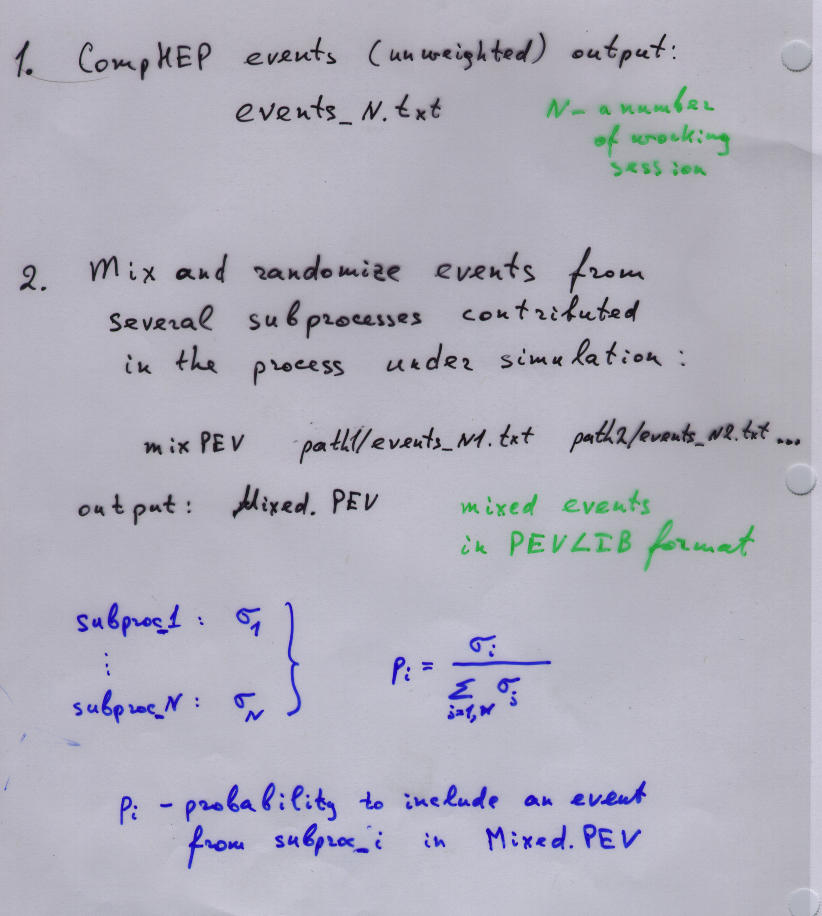 1. CompHEP events (unweighted) output:
events_N.txt
N - a number
of wrocking
session
2. Mix and randomize events from
several subprocesses contributed
in the process under simulation:
mixPEV path1/events_N1.txt path2/events_N2.txt ...
output: Mixed.PEV
mixed events
in PEVLIB format
subproc_1 : σ₁
⋮
subproc_N : σ_N
pᵢ = σᵢ / Σ_{j=1,N} σⱼ
pᵢ - probability to include an event
from subproc_i in Mixed.PEV